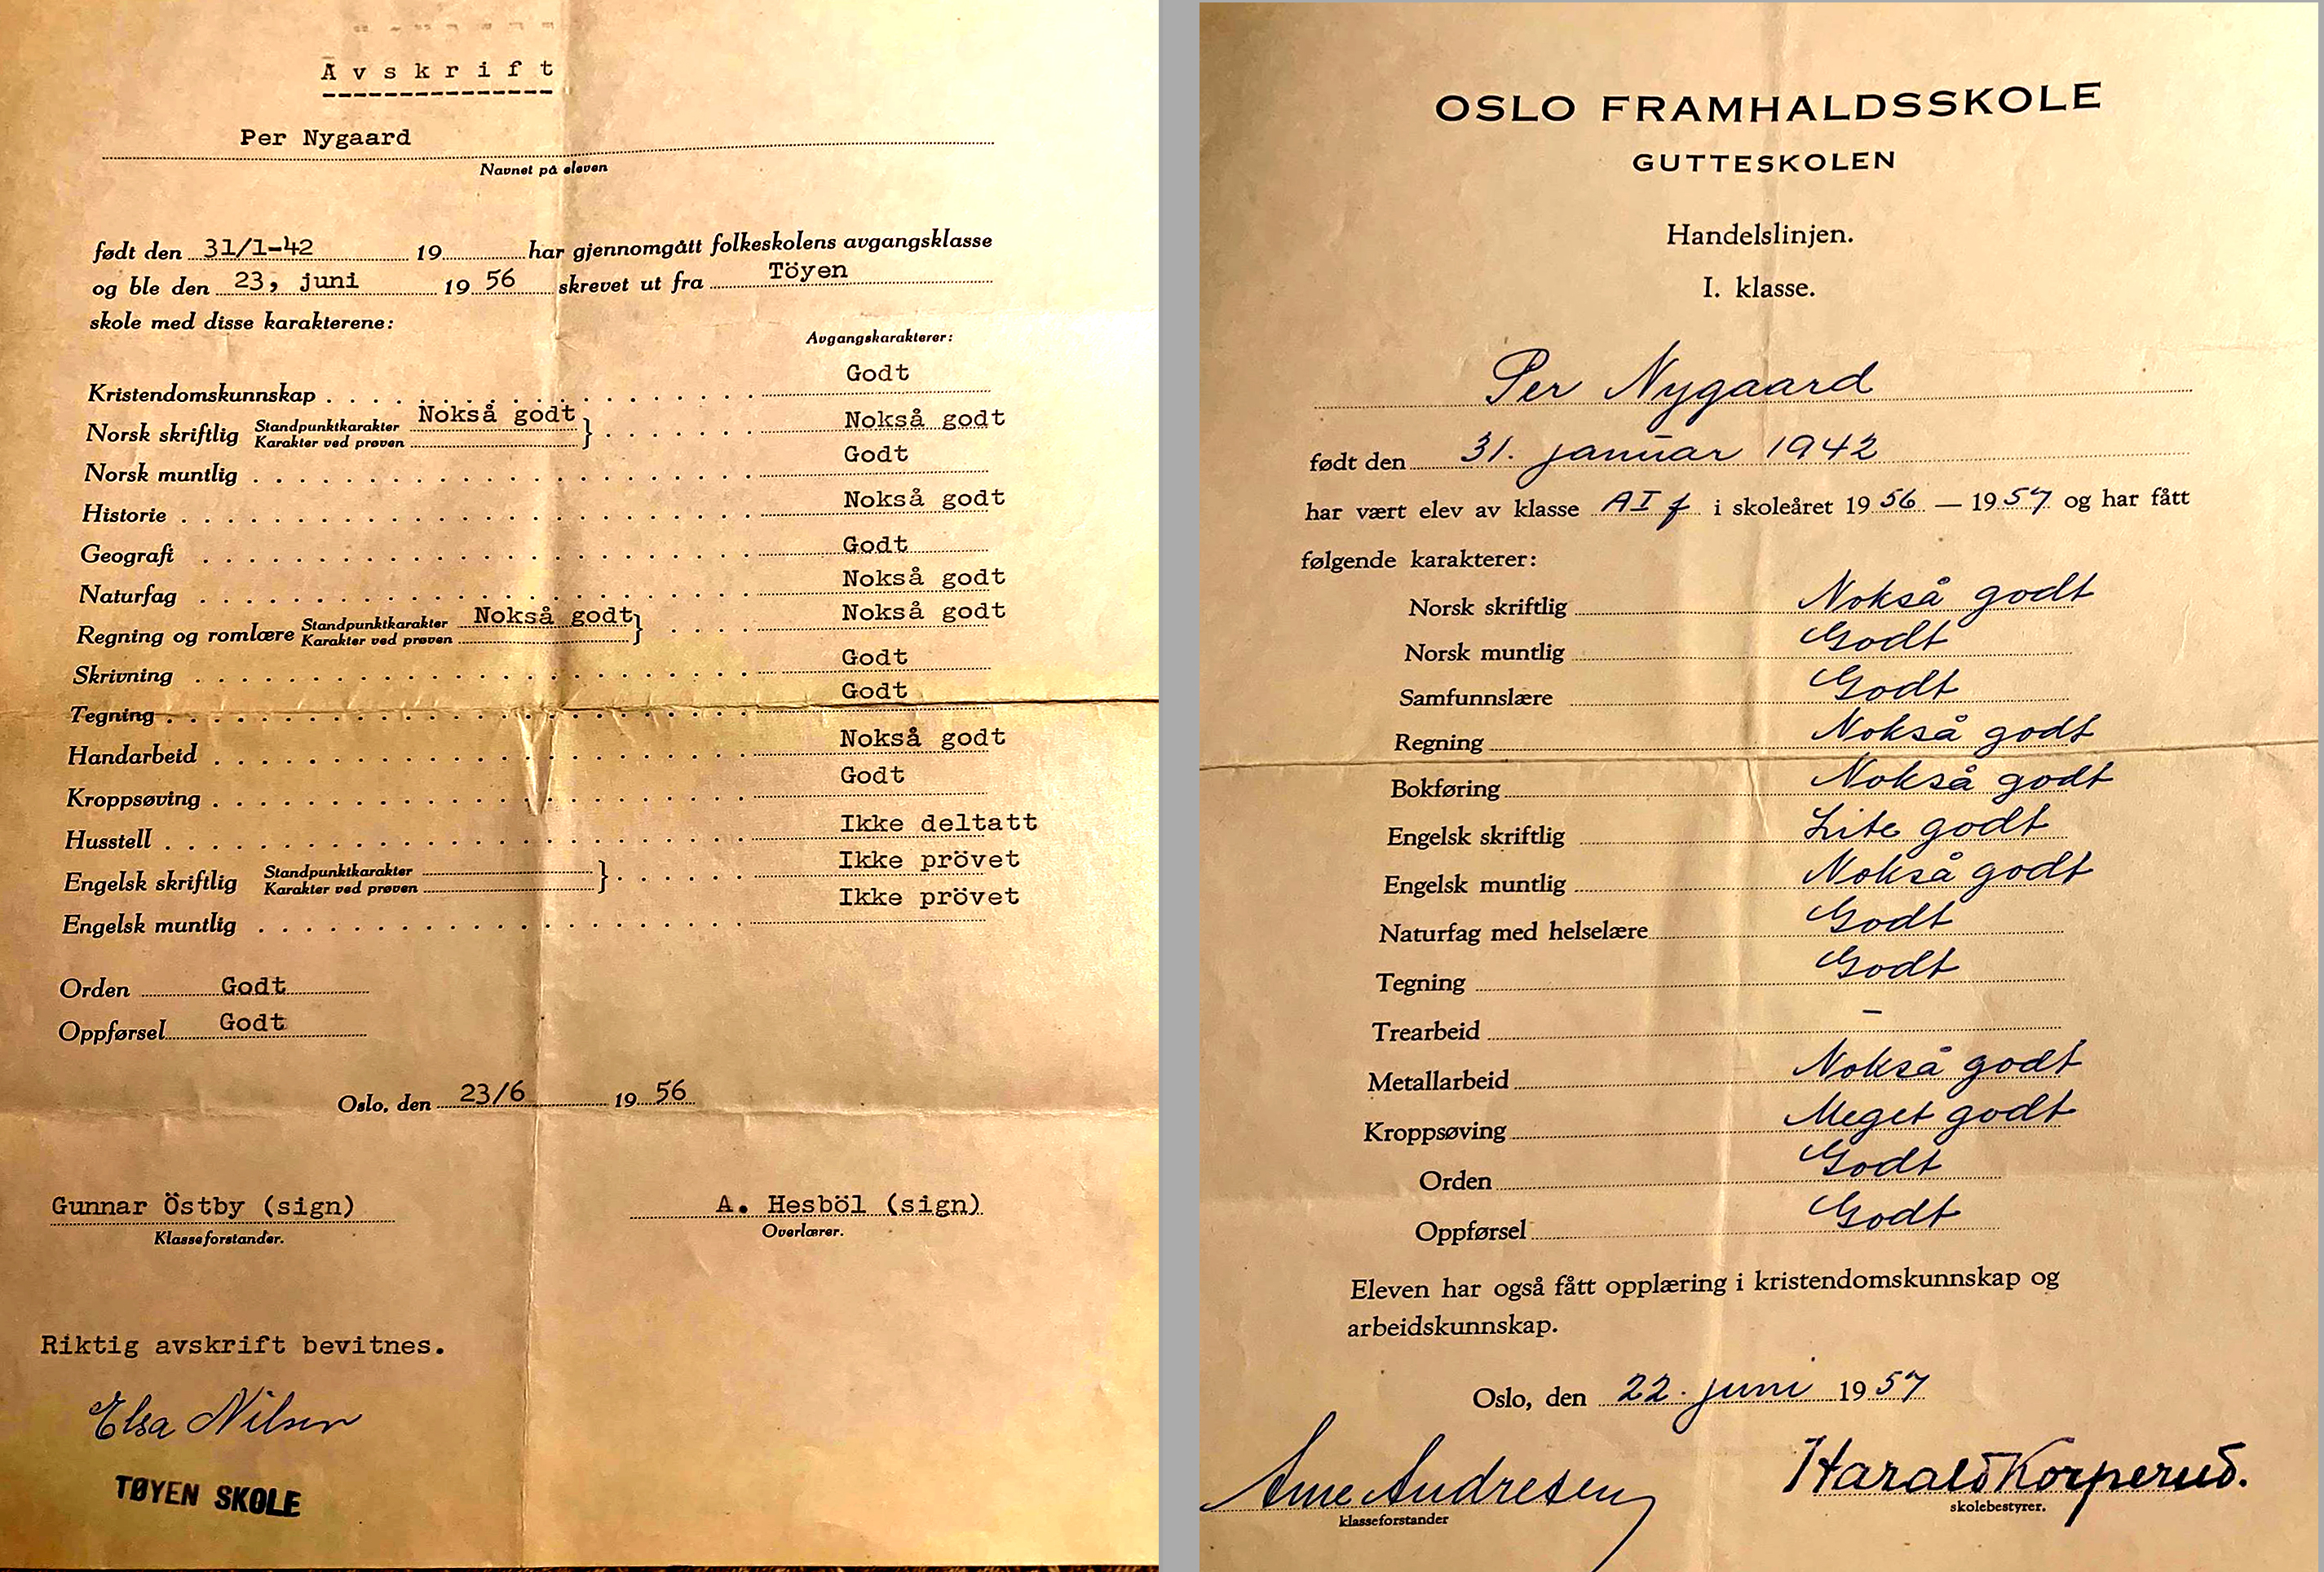 Avskrift
Per Nygaard
Navnet på eleven
født den 31/1-42 19 har gjennomgått folkeskolens avgangsklasse
og ble den 23, juni 19 56 skrevet ut fra Töyen
skole med disse karakterene:
Avgangskarakterer:
Kristendomskunnskap Godt
Norsk skriftlig Standpunktkarakter Nokså godt Nokså godt
Karakter ved prøven
Norsk muntlig Godt
Historie Nokså godt
Geografi Godt
Naturfag Nokså godt
Regning og romlære Standpunktkarakter Nokså godt Nokså godt
Karakter ved prøven
Skrivning Godt
Tegning Godt
Handarbeid Nokså godt
Kroppsøving Godt
Husstell Ikke deltatt
Engelsk skriftlig Standpunktkarakter Ikke prövet
Karakter ved prøven
Engelsk muntlig Ikke prövet
Orden Godt
Oppførsel Godt
Oslo, den 23/6 19 56
Gunnar Östby (sign) A. Hesböl (sign)
Klasseforstander. Overlærer.
Riktig avskrift bevitnes.
Elsa Nilsen
TØYEN SKOLE
OSLO FRAMHALDSSKOLE
GUTTESKOLEN
Handelslinjen.
I. klasse.
Per Nygaard
født den 31. januar 1942
har vært elev av klasse AI f i skoleåret 19 56 — 19 57 og har fått
følgende karakterer:
Norsk skriftlig Nokså godt
Norsk muntlig Godt
Samfunnslære Godt
Regning Nokså godt
Bokføring Nokså godt
Engelsk skriftlig Lite godt
Engelsk muntlig Nokså godt
Naturfag med helselære Godt
Tegning Godt
Trearbeid –
Metallarbeid Nokså godt
Kroppsøving Meget godt
Orden Godt
Oppførsel Godt
Eleven har også fått opplæring i kristendomskunnskap og
arbeidskunnskap.
Oslo, den 22. juni 19 57
Arne Andresen Harald Korperud.
klasseforstander skolebestyrer.